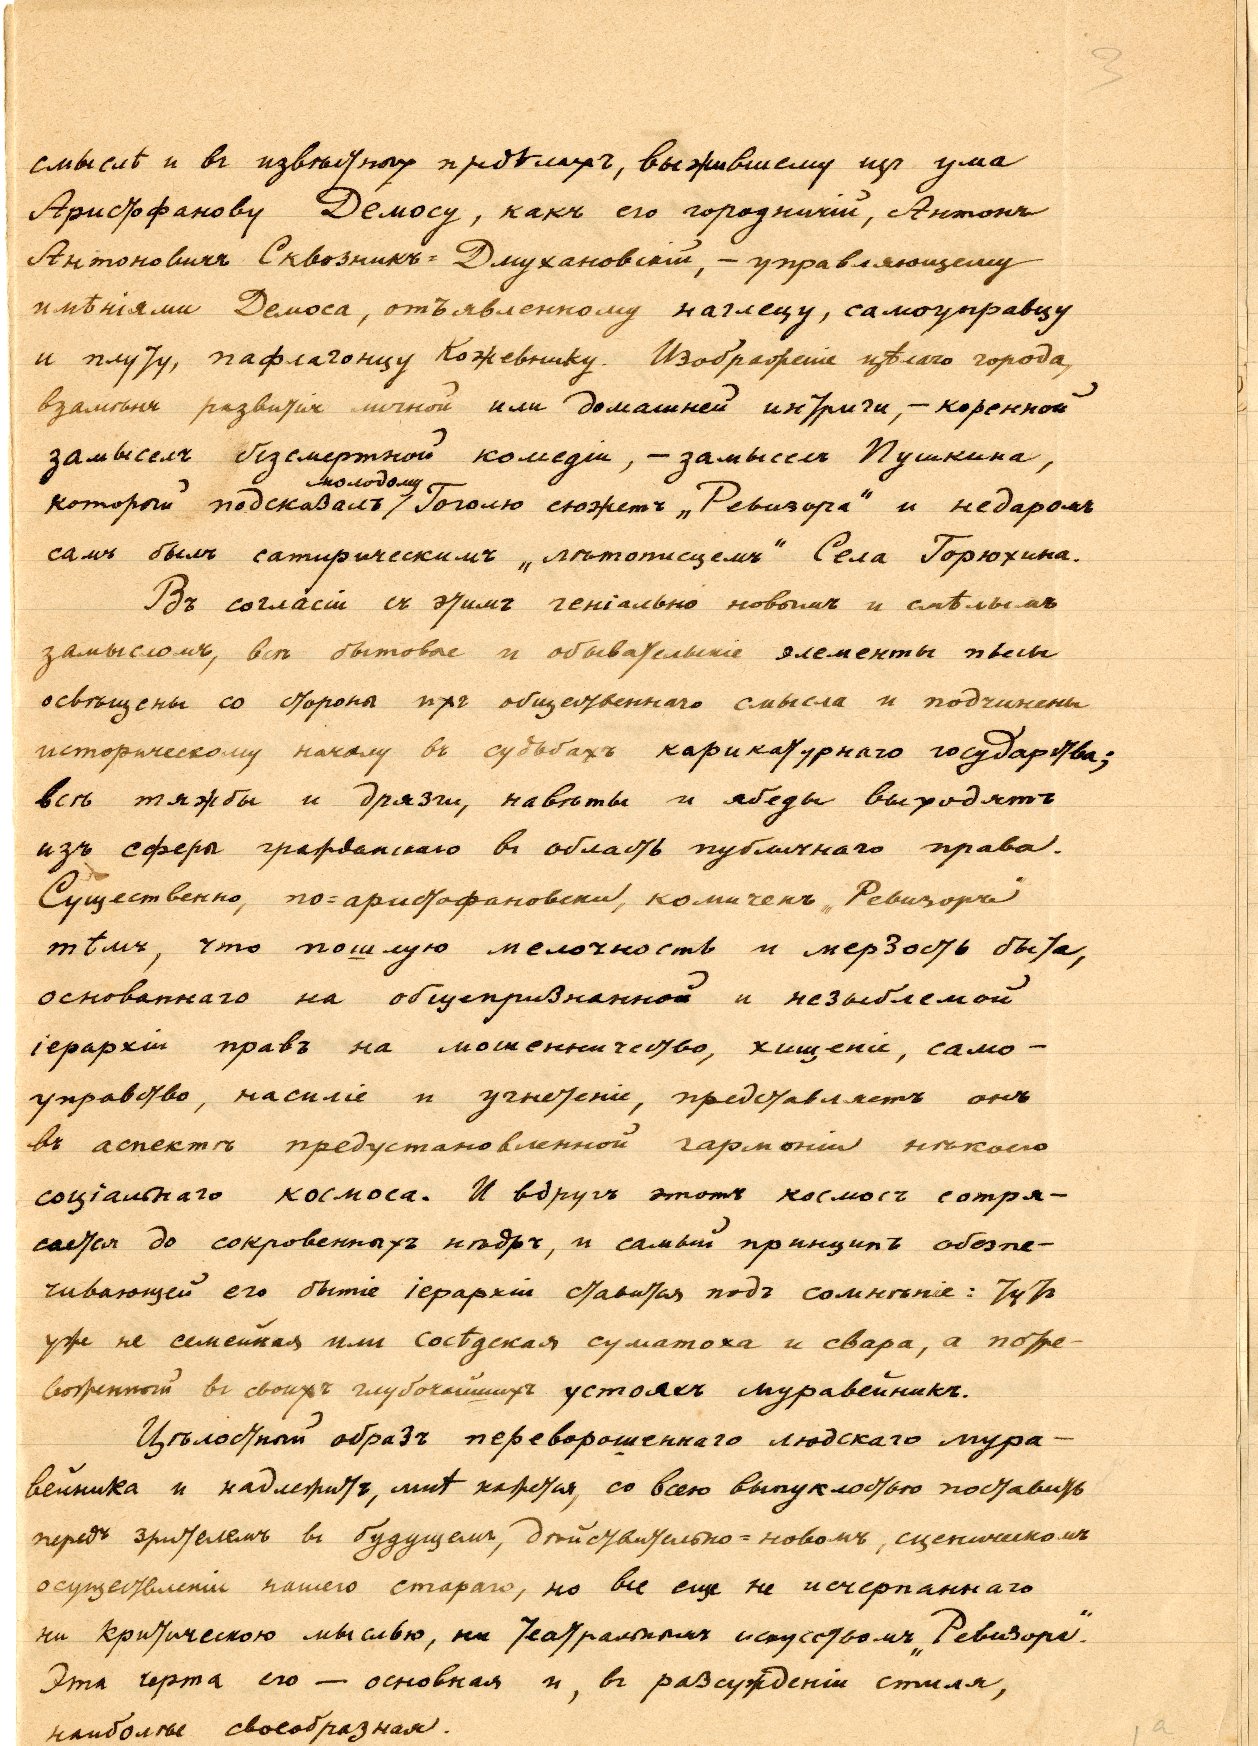 3
смыслѣ и въ извѣстныхъ предѣлахъ, выжившему изъ ума
Аристофанову Демосу, какъ его городничій, Антонъ
Антоновичъ Сквозникъ=Дмухановскій, – управляющему
имѣніями Демоса, отъявленному наглецу, самоуправцу
и плуту, пафлагонцу Кожевнику. Изображеніе цѣлаго города,
взамѣнъ развитія личной или домашней интриги, – коренной
замыселъ безсмертной комедіи, – замыселъ Пушкина,
молодому
который подсказалъ Гоголю сюжетъ „Ревизора“ и недаромъ
самъ былъ сатирическимъ „лѣтописцемъ“ Села Горюхина.
Въ согласіи съ этимъ геніально новымъ и смѣлымъ
замысломъ, всѣ бытовые и обывательскіе элементы пьесы
освѣщены со стороны ихъ общественнаго смысла и подчинены
историческому началу въ судьбахъ карикатурнаго государства;
всѣ тяжбы и дрязги, навѣты и ябеды выходятъ
изъ сферы гражданскаго въ область публичнаго права.
Существенно, по=аристофановски, комиченъ „Ревизоръ“
тѣмъ, что пошлую мелочность и мерзость быта,
основаннаго на общепризнанной и незыблемой
іерархіи правъ на мошенничество, хищеніе, само–
управство, насиліе и угнетеніе, представляетъ онъ
въ аспектѣ предустановленной гармоніи нѣкоего
соціальнаго космоса. И вдругъ этотъ космосъ сотря–
сается до сокровенныхъ нѣдръ, и самый принципъ обезпе–
чивающей его бытіе іерархіи ставится подъ сомнѣніе: тутъ
уже не семейная или сосѣдская суматоха и свара, а потре–
воженный въ своихъ глубочайшихъ устояхъ муравейникъ.
Цѣлостный образъ переворошеннаго людскаго мура–
вейника и надлежитъ, мнѣ кажется, со всею выпуклостью поставить
передъ зрителемъ въ будущемъ, дѣйствительно=новомъ, сценическомъ
осуществленіи нашего стараго, но все еще не исчерпаннаго
ни критическою мыслью, ни театральнымъ искусствомъ „Ревизора“.
Эта черта его – основная и, въ разсужденіи стиля,
наиболѣе своеобразная.
1a